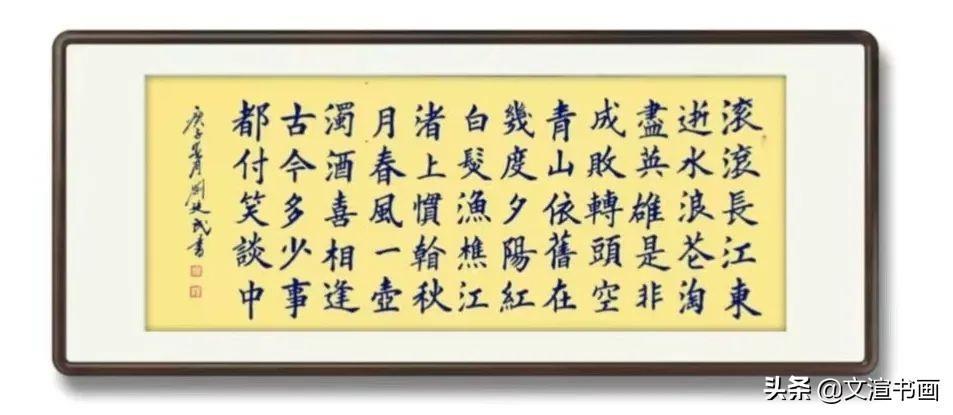 滚滾長江東
逝水浪花淘
盡英雄是非
成敗轉頭空
青山依舊在
幾度夕陽紅
白髮漁樵江
渚上慣翰秋
月春風一壺
濁酒喜相逢
古今多少事
都付笑談中
庚子月劉書
头条 @文渲书画